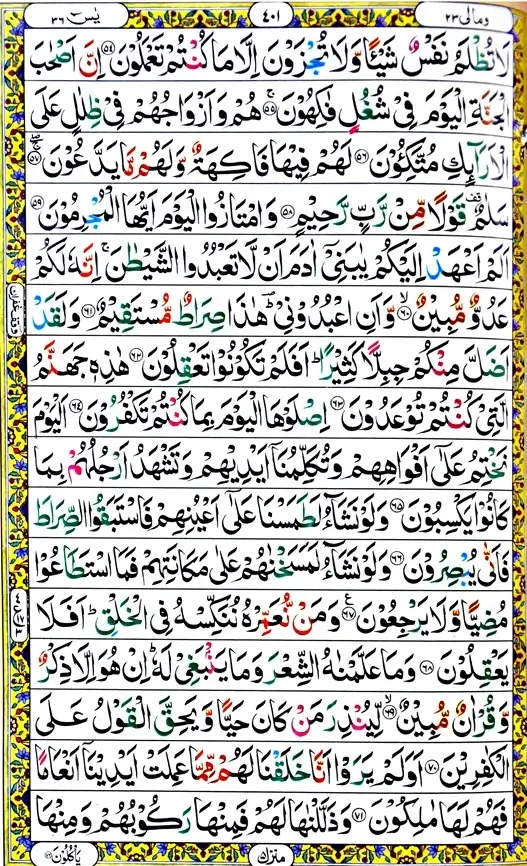 ومالى ٢٣
٤٠١
يٰسٓ ٣٦
لَا تُظْلَمُ نَفْسٌ شَيْئًا وَّلَا تُجْزَوْنَ اِلَّا مَا كُنْتُمْ تَعْمَلُوْنَ ﴿٥٤﴾ اِنَّ اَصْحٰبَ
الْجَنَّةِ الْيَوْمَ فِىْ شُغُلٍ فٰكِهُوْنَ ﴿٥٥﴾ هُمْ وَاَزْوَاجُهُمْ فِىْ ظِلٰلٍ عَلَى
الْاَرَآئِكِ مُتَّكِئُوْنَ ﴿٥٦﴾ لَهُمْ فِيْهَا فَاكِهَةٌ وَّلَهُمْ مَّا يَدَّعُوْنَ ﴿٥٧﴾
سَلٰمٌ قف قَوْلًا مِّنْ رَّبٍّ رَّحِيْمٍ ﴿٥٨﴾ وَامْتَازُوا الْيَوْمَ اَيُّهَا الْمُجْرِمُوْنَ ﴿٥٩﴾
اَلَمْ اَعْهَدْ اِلَيْكُمْ يٰبَنِىْٓ اٰدَمَ اَنْ لَّا تَعْبُدُوا الشَّيْطٰنَ ۚ اِنَّهٗ لَكُمْ
عَدُوٌّ مُّبِيْنٌ ﴿٦٠﴾ وَّاَنِ اعْبُدُوْنِىْ ؕ هٰذَا صِرَاطٌ مُّسْتَقِيْمٌ ﴿٦١﴾ وَلَقَدْ
اَضَلَّ مِنْكُمْ جِبِلًّا كَثِيْرًا ؕ اَفَلَمْ تَكُوْنُوْا تَعْقِلُوْنَ ﴿٦٢﴾ هٰذِهٖ جَهَنَّمُ
الَّتِىْ كُنْتُمْ تُوْعَدُوْنَ ﴿٦٣﴾ اِصْلَوْهَا الْيَوْمَ بِمَا كُنْتُمْ تَكْفُرُوْنَ ﴿٦٤﴾ اَلْيَوْمَ
نَخْتِمُ عَلٰٓى اَفْوَاهِهِمْ وَتُكَلِّمُنَآ اَيْدِيْهِمْ وَتَشْهَدُ اَرْجُلُهُمْ بِمَا
كَانُوْا يَكْسِبُوْنَ ﴿٦٥﴾ وَلَوْ نَشَآءُ لَطَمَسْنَا عَلٰٓى اَعْيُنِهِمْ فَاسْتَبَقُوا الصِّرَاطَ
فَاَنّٰى يُبْصِرُوْنَ ﴿٦٦﴾ وَلَوْ نَشَآءُ لَمَسَخْنٰهُمْ عَلٰى مَكَانَتِهِمْ فَمَا اسْتَطَاعُوْا
مُضِيًّا وَّلَا يَرْجِعُوْنَ ﴿٦٧﴾ وَمَنْ نُّعَمِّرْهُ نُنَكِّسْهُ فِى الْخَلْقِ ؕ اَفَلَا
يَعْقِلُوْنَ ﴿٦٨﴾ وَمَا عَلَّمْنٰهُ الشِّعْرَ وَمَا يَنْۢبَغِىْ لَهٗ ؕ اِنْ هُوَ اِلَّا ذِكْرٌ
وَّقُرْاٰنٌ مُّبِيْنٌ ﴿٦٩﴾ لِّيُنْذِرَ مَنْ كَانَ حَيًّا وَّيَحِقَّ الْقَوْلُ عَلَى
الْكٰفِرِيْنَ ﴿٧٠﴾ اَوَلَمْ يَرَوْا اَنَّا خَلَقْنَا لَهُمْ مِّمَّا عَمِلَتْ اَيْدِيْنَآ اَنْعَامًا
فَهُمْ لَهَا مٰلِكُوْنَ ﴿٧١﴾ وَذَلَّلْنٰهَا لَهُمْ فَمِنْهَا رَكُوْبُهُمْ وَمِنْهَا
منزل
يَاْكُلُوْنَ